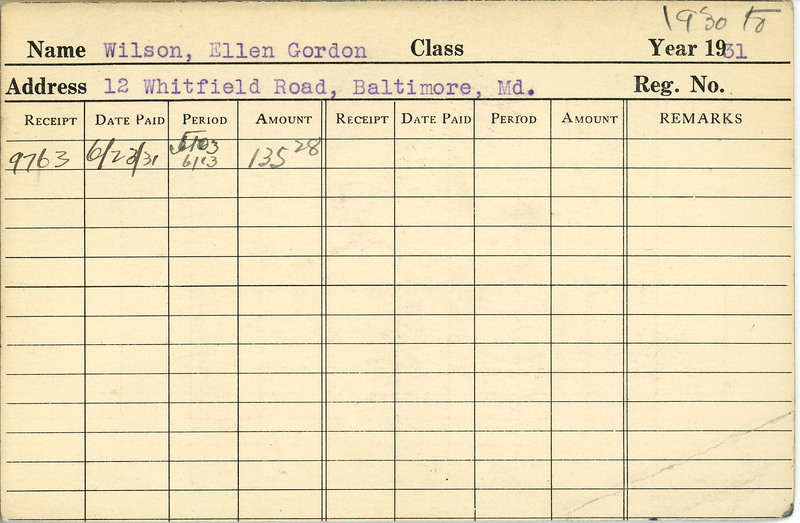 1930 to
Name Wilson, Ellen Gordon Class Year 1931
Address 12 Whitfield Road, Baltimore, Md. Reg. No.
RECEIPT DATE PAID PERIOD AMOUNT RECEIPT DATE PAID PERIOD AMOUNT REMARKS
9763 6/23/31 6/13 135 28